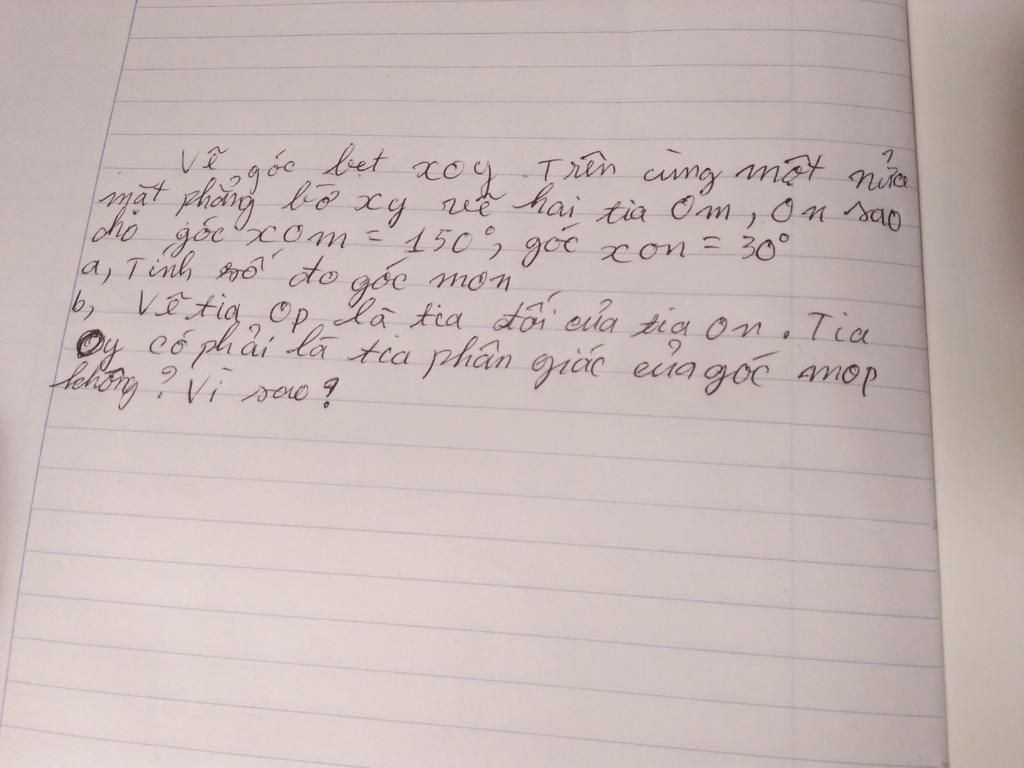 Vẽ góc bẹt xoy. Trên cùng một nửa
mặt phẳng bờ xy vẽ hai tia Om, On sao
cho góc xOm = 150°, góc xon = 30°
a, Tính số đo góc mon
b, Vẽ tia Op là tia đối của tia On. Tia
Oy có phải là tia phân giác của góc mop
không? Vì sao?